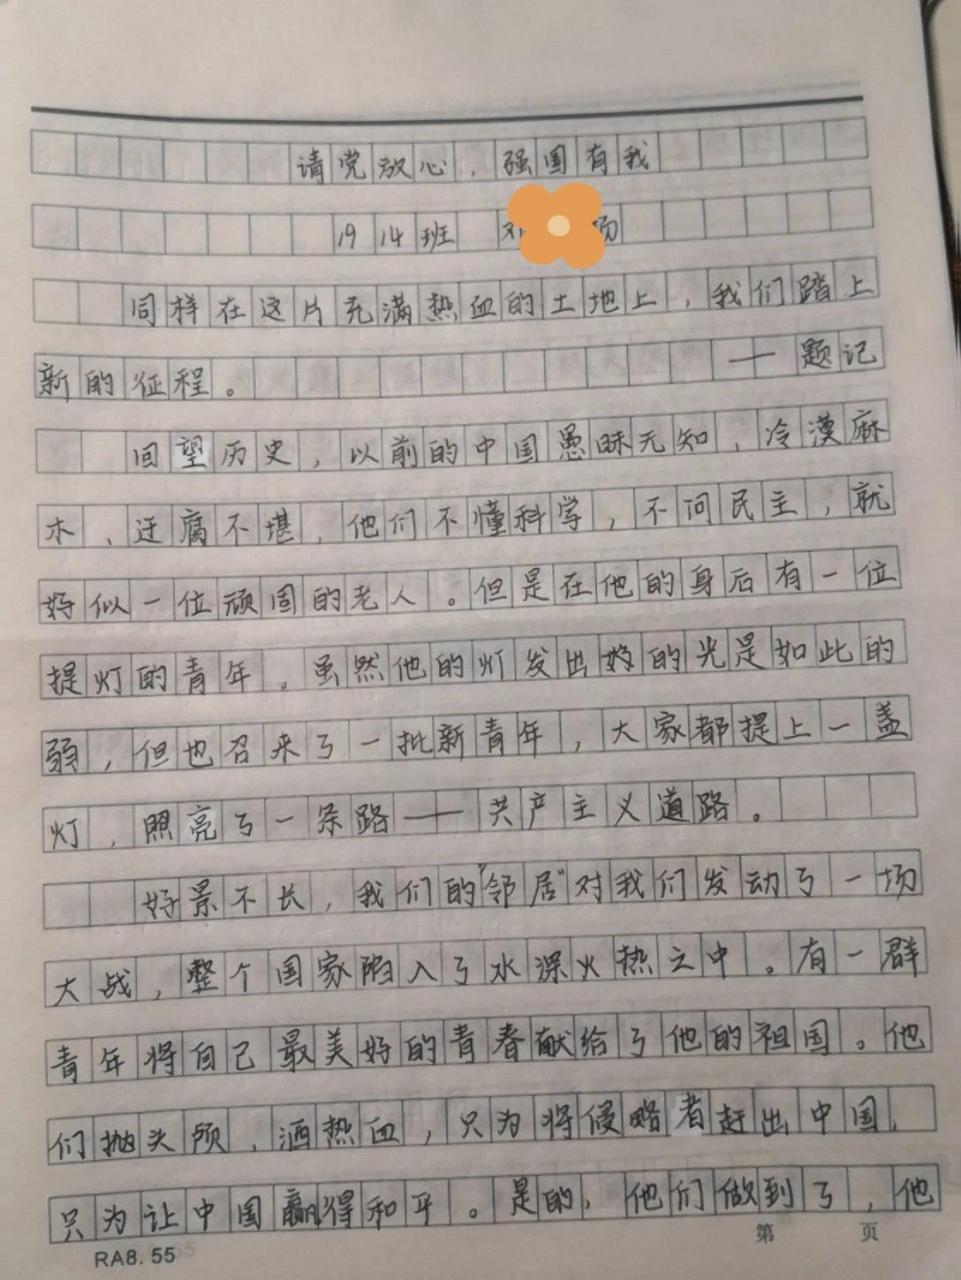 请党放心，强国有我
1914班
同样在这片充满热血的土地上，我们踏上
新的征程。 ——题记
回望历史，以前的中国愚昧无知，冷漠麻
木、迂腐不堪，他们不懂科学，不问民主，就
好似一位顽固的老人。但是在他的身后有一位
提灯的青年。虽然他的灯发出的光是如此的
弱，但也召来了一批新青年，大家都提上一盏
灯，照亮了一条路——共产主义道路。
好景不长，我们的“邻居”对我们发动了一场
大战，整个国家陷入了水深火热之中。有一群
青年将自己最美好的青春献给了他的祖国。他
们抛头颅、洒热血，只为将侵略者赶出中国，
只为让中国赢得和平。是的，他们做到了，他
第 页
RA8.55